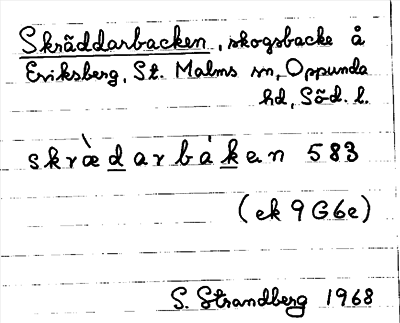 Skräddarbacken, skogsbacke å
Eriksberg, St. Malms sn, Oppunda
hd, Söd. l.
skræ̀darbáken 583
(ek 9G6e)
S. Strandberg 1968